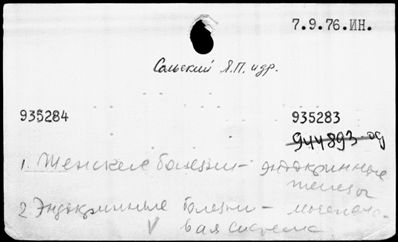 7.9.76.ИН.
Сольский Я.П. и др.
935284
935283
944893-од
1. Женские болезни - эндокринные
железы
2. Эндокринные болезни - мочепол-
вая система